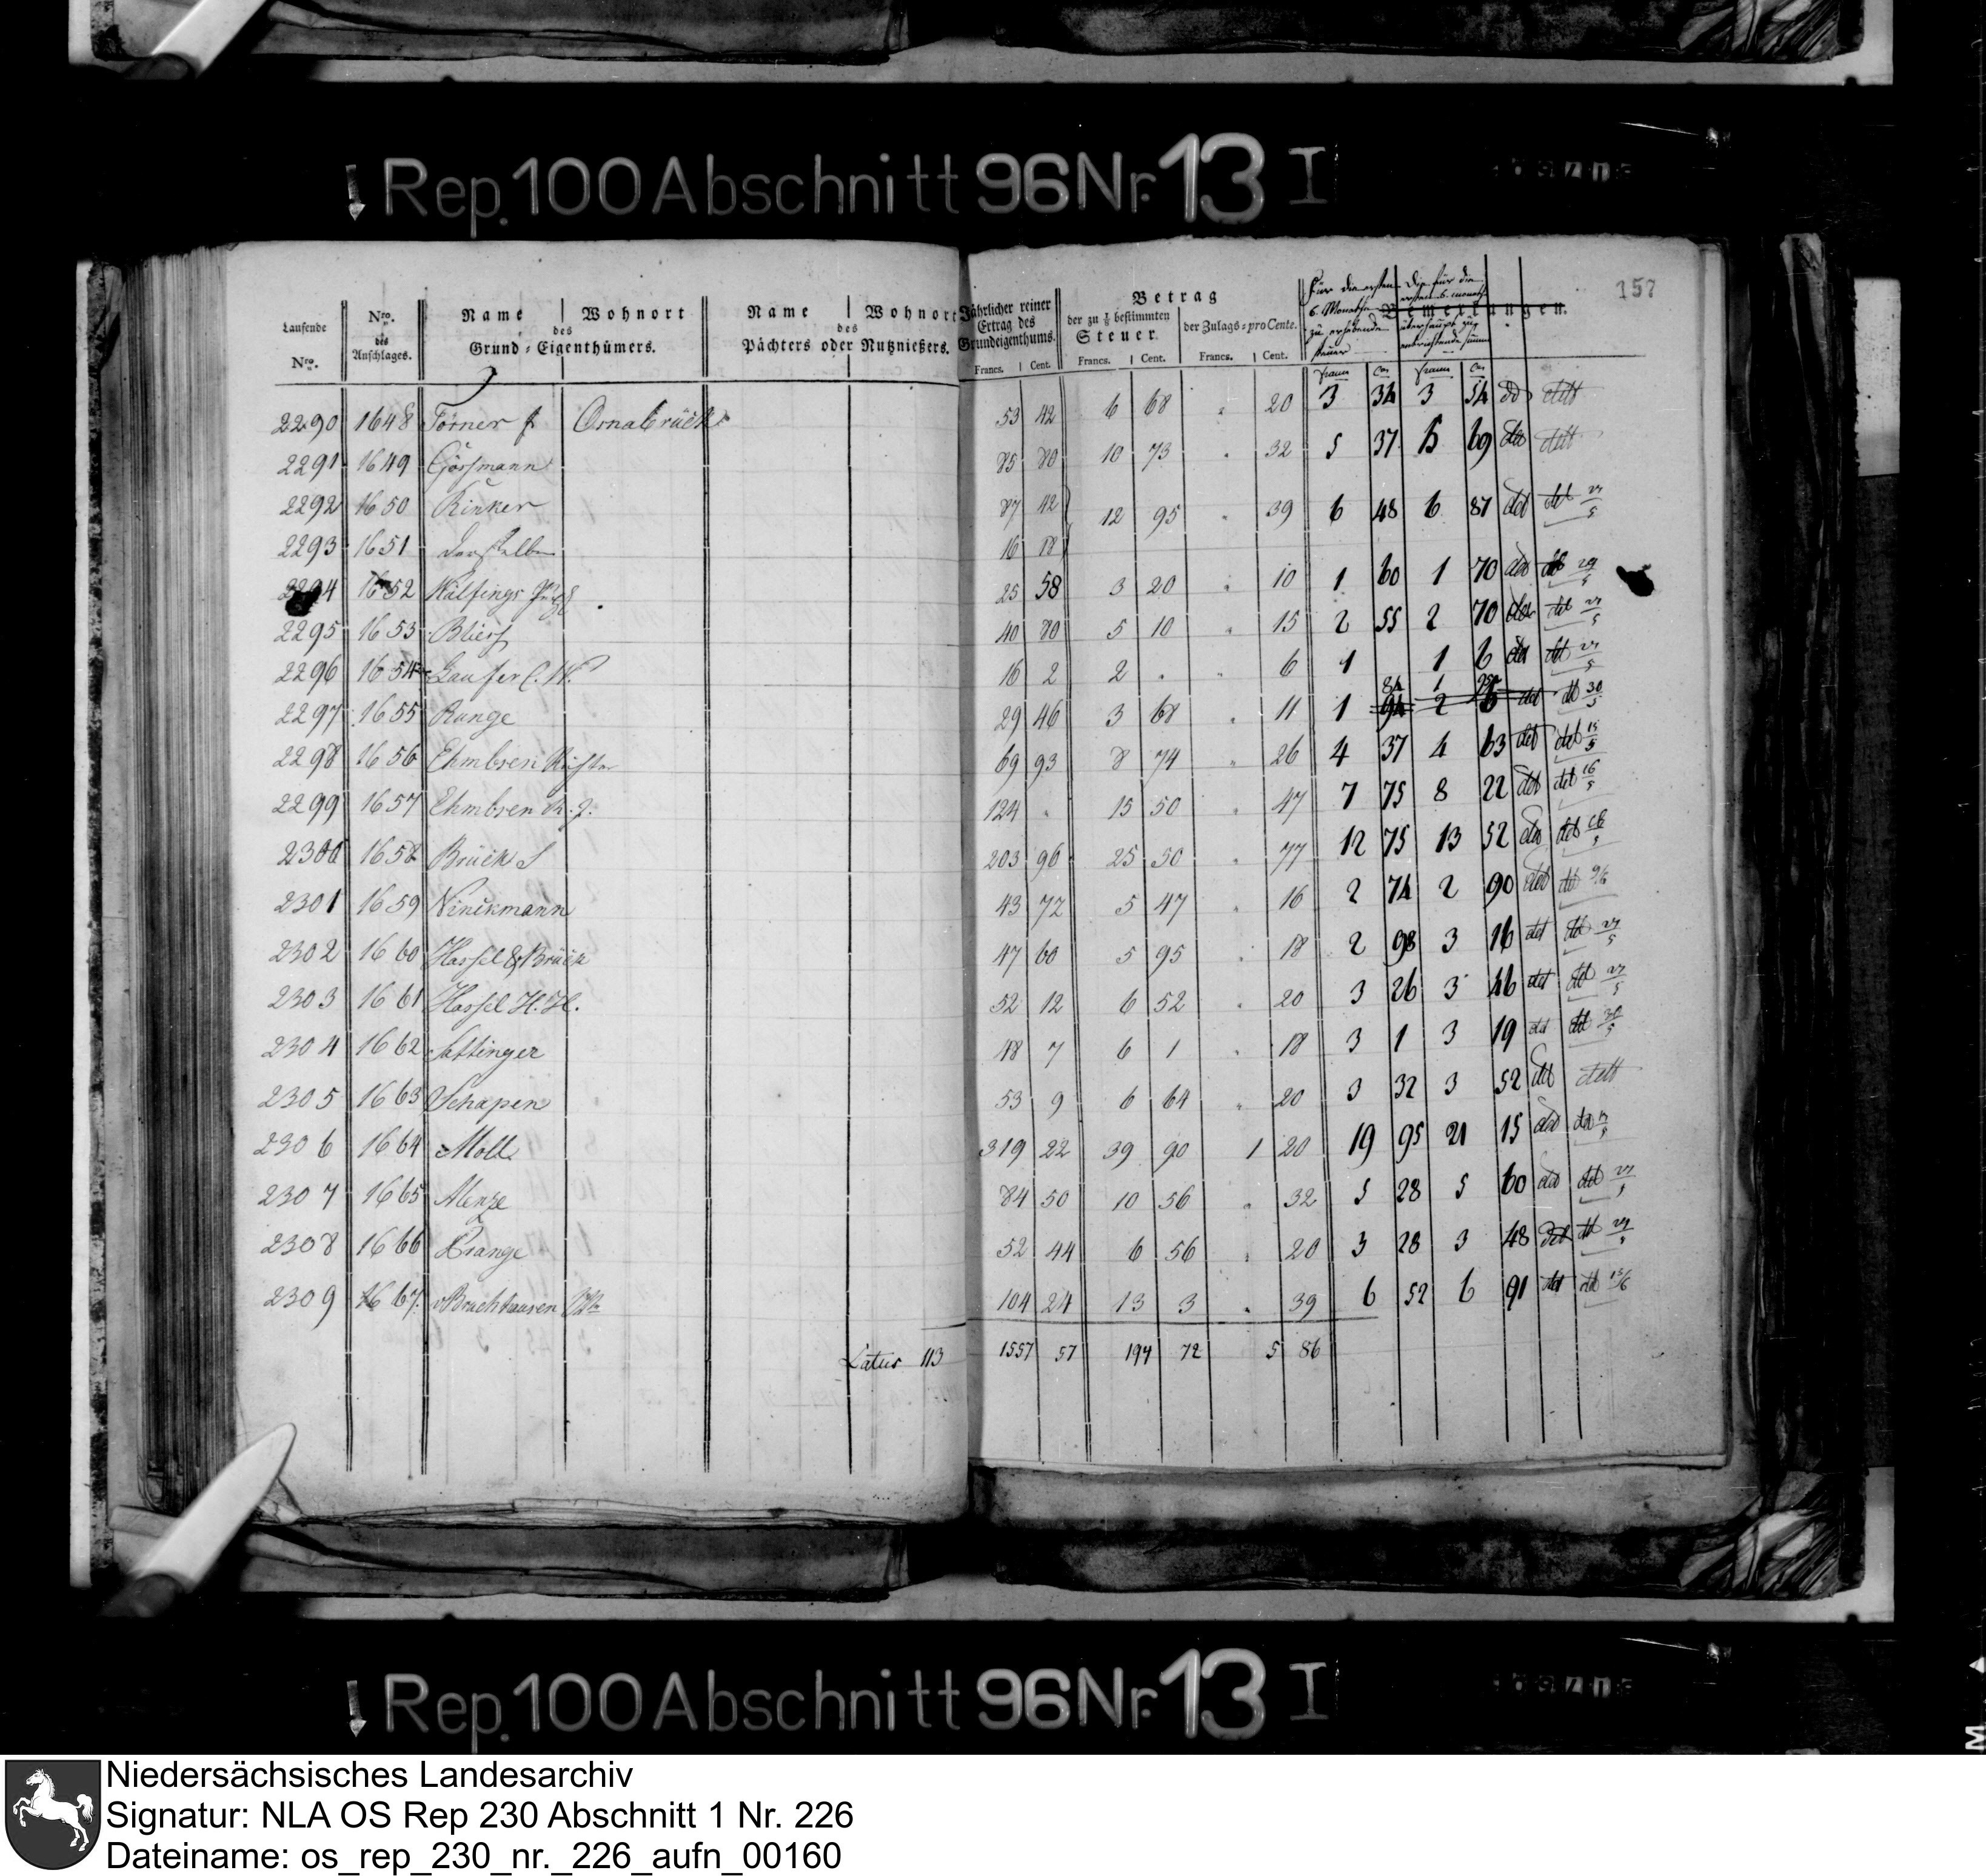 Rep. 100 Abschnitt 96 Nr. 13 I
157
Laufende Nro. Nro. des Anschlages. Name Wohnort des Grund-Eigenthümers. Name Wohnort des Pächters oder Nutznießers. Jährlicher reiner Ertrag des Grundeigenthums. Betrag der zu 1/8 bestimmten Steuer. der Zulags-pro Cente. Für die ersten 6. Monathe zu erhebende Steuer Die für die ersten 6. monathe überhaupt zu entrichtende Summe Bemerkungen.
Francs. Cent. Francs. Cent. Francs. Cent. Francs Cs Francs Cs
2290 1648 Törner Osnabrück 53 42 6 68 " 20 3 34 3 54 dett
2291 1649 Gösmann 85 80 10 73 " 32 5 37 5 69 dett
2292 1650 Rinker 87 42 12 95 " 39 6 48 6 87 det det 27/5
2293 1651 Derselbe 16 18
2294 1652 Wülfings 25 58 3 20 " 10 1 60 1 70 det det 29/5
2295 1653 40 80 5 10 " 15 2 55 2 70 det det 27/5
2296 1654 Laufer C. W. 16 2 2 " " 6 1 1 6 det det 27/5
2297 1655 Runge 29 46 3 68 " 11 1 84 1 95 det det 30/5
2298 1656 Ehmbsen 69 93 8 74 " 26 4 37 4 63 det det 15/5
2299 1657 Ehmbsen 124 " 15 50 " 47 7 75 8 22 det det 16/5
2300 1658 Brück 203 96 25 50 " 77 12 75 13 52 det det
2301 1659 Ninckmann 43 72 5 47 " 16 2 74 2 90 det det 9/6
2302 1660 Hassel & Brück 47 60 5 95 " 18 2 98 3 16 det det 27/5
2303 1661 Hassel H. H. 52 12 6 52 " 20 3 26 3 46 det det 27/5
2304 1662 Sattinger 48 7 6 1 " 18 3 1 3 19 det det 30/5
2305 1663 Schapen 53 9 6 64 " 20 3 32 3 52 det dett
2306 1664 Moll 319 22 39 90 1 20 19 95 21 15 det det
2307 1665 Menze 84 50 10 56 " 32 5 28 5 60 det det 27/5
2308 1666 Prange 52 44 6 56 " 20 3 28 3 48 det det 29/5
2309 1667 v Bruchhausen 104 24 13 3 " 39 6 52 6 91 det det 15/6
Latus 113 1557 57 194 72 5 86
Rep. 100 Abschnitt 96 Nr. 13 I
Niedersächsisches Landesarchiv
Signatur: NLA OS Rep 230 Abschnitt 1 Nr. 226
Dateiname: os_rep_230_nr._226_aufn_00160